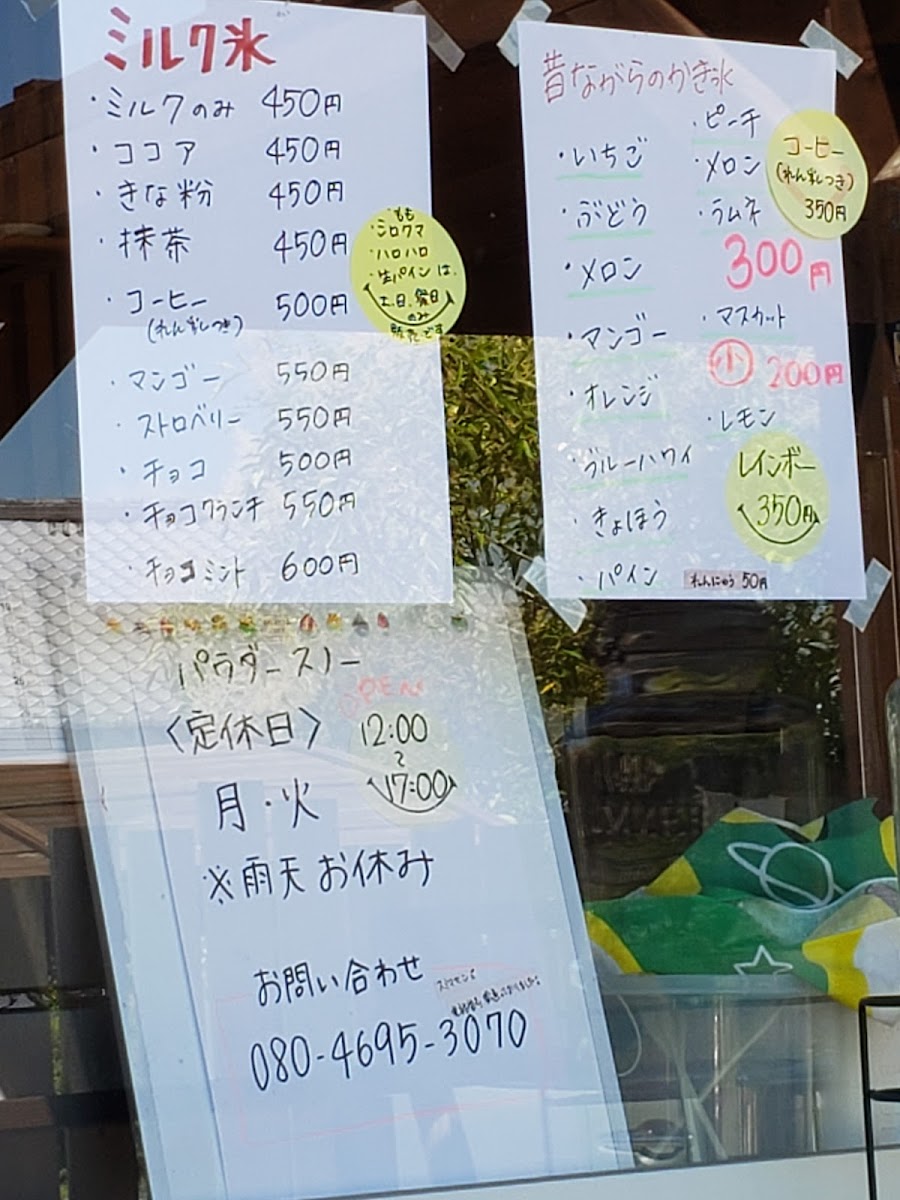 ミルク氷
・ミルクのみ 450円
・ココア 450円
・きな粉 450円
・抹茶 450円
・コーヒー 500円
(れん乳つき)
・マンゴー 550円
・ストロベリー 550円
・チョコ 500円
・チョコクランチ 550円
・チョコミント 600円
・もも
・シロクマ
・ハロハロ
・生パインは、
土、日、祭日
のみ
販売です
昔ながらのかき氷
・いちご
・ぶどう
・メロン
・マンゴー
・オレンジ
・ブルーハワイ
・きょほう
・パイン
・ピーチ
・メロン
・ラムネ
300円
・マスカット
小 200円
・レモン
コーヒー
(れん乳つき)
350円
レインボー
350円
れんにゅう 50円
パウダースノー
〈定休日〉
月・火
OPEN
12:00
～
17:00
※雨天お休み
お問い合わせ
080-4695-3070